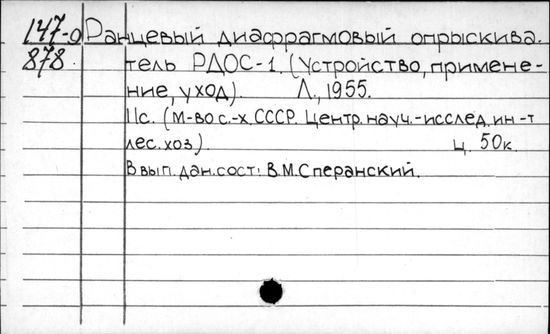 147-0 Ранцевый диафрагмовый опрыскива-
878. тель РДОС-1. (Устройство, примене-
ние, уход). Л., 1955.
11с. (М-во с.-х. СССР. Центр. науч.-исслед. ин-т
лес. хоз.) ц. 50к.
В вып. дан. сост: В.М.Сперанский.